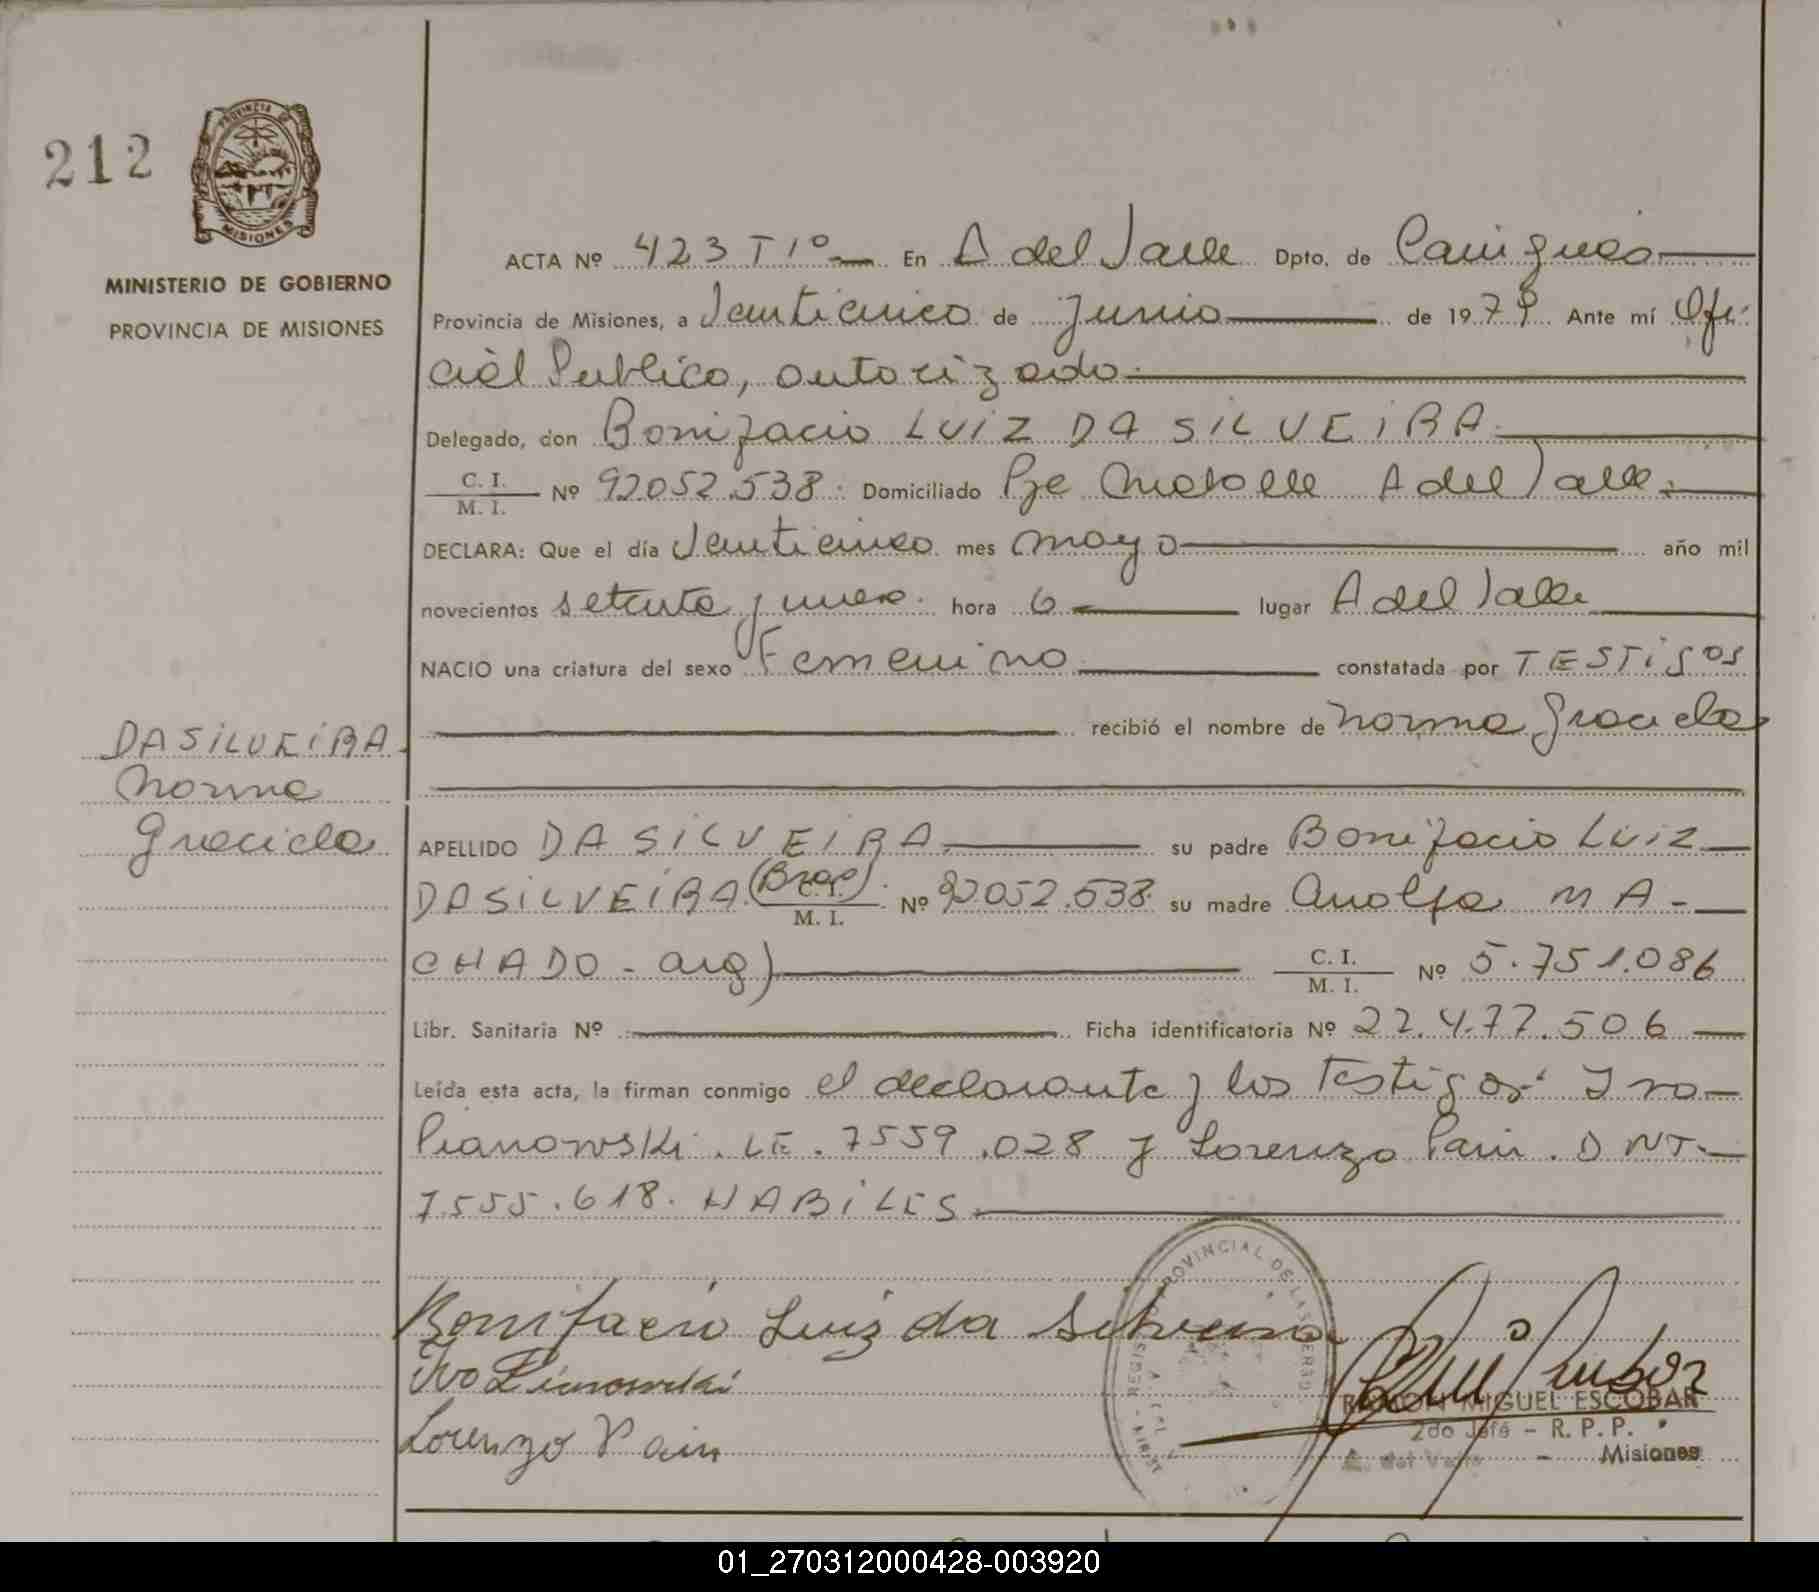 212
PROVINCIA DE
MISIONES
MINISTERIO DE GOBIERNO
PROVINCIA DE MISIONES
ACTA Nº 423 T 1º En A del Valle Dpto. de Cainguas
Provincia de Misiones, a Veinticinco de Junio de 1979 Ante mí Ofi-
cial Publico, autorizado
Delegado, don Bonifacio LUIZ DA SILVEIRA
C. I.
M. I. Nº 92052.538. Domiciliado Pje A del Valle
DECLARA: Que el día Veinticinco mes mayo año mil
novecientos setenta y nueve hora 6 lugar A del Valle
NACIO una criatura del sexo Femenino constatada por TESTIGOS
recibió el nombre de Norma Graciela
DA SILVEIRA
Norma
Graciela
APELLIDO DA SILVEIRA su padre Bonifacio LUIZ
DA SILVEIRA (Bras) C. I. M. I. Nº 92052.538 su madre MA-
CHADO - arg) C. I. M. I. Nº 5.751.086
Libr. Sanitaria Nº Ficha identificatoria Nº 22.477.506
Leída esta acta, la firman conmigo el declarante y los Testigos: Ivo
Pianowski. LE. 7559.028 y Lorenzo Pain. DNI-
7.555.618. HABILES
Bonifacio Luiz da Silveira
Ivo Pianowski
Lorenzo Pain
PROVINCIAL DE LAS PERSO
RAMON MIGUEL ESCOBAR
2do Jefe - R. P. P.
A. del Valle - Misiones
01_270312000428-003920